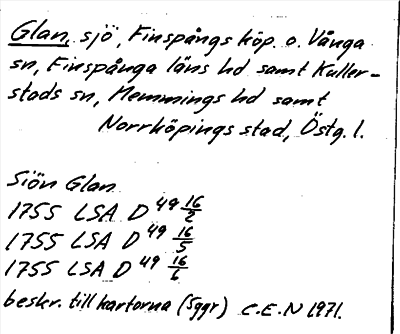 Glan, sjö, Finspångs köp. o. Vånga
sn, Finspånga läns hd samt Kuller-
stads sn, Memmings hd samt
Norrköpings stad, Östg. l.
Siön Glan
1755 LSA D 49 16/2
1755 LSA D 49 16/5
1755 LSA D 49 16/6
beskr. till kartorna (5ggr) C.E.N 1971.